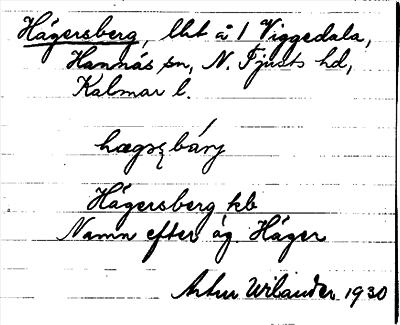 Hägersberg, lht å 1 Viggedala,
Hannäs sn, N. Tjusts hd,
Kalmar l.
Hägersberg kb
Namn efter äg Häger
Artur Wilander 1930